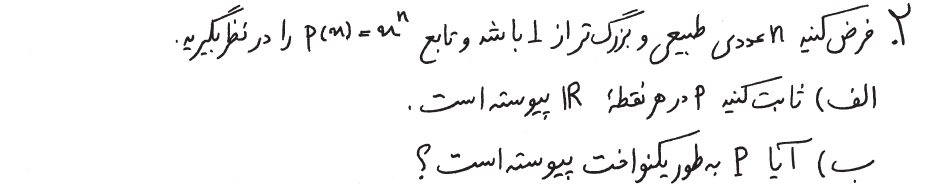 ۲. فرض کنید n عددی طبیعی و بزرگ‌تر از 1 باشد و تابع p(x) = xⁿ را در نظر بگیرید.
الف) ثابت کنید P در هر نقطهٔ ℝ پیوسته است.
ب) آیا P به‌طور یکنواخت پیوسته است؟